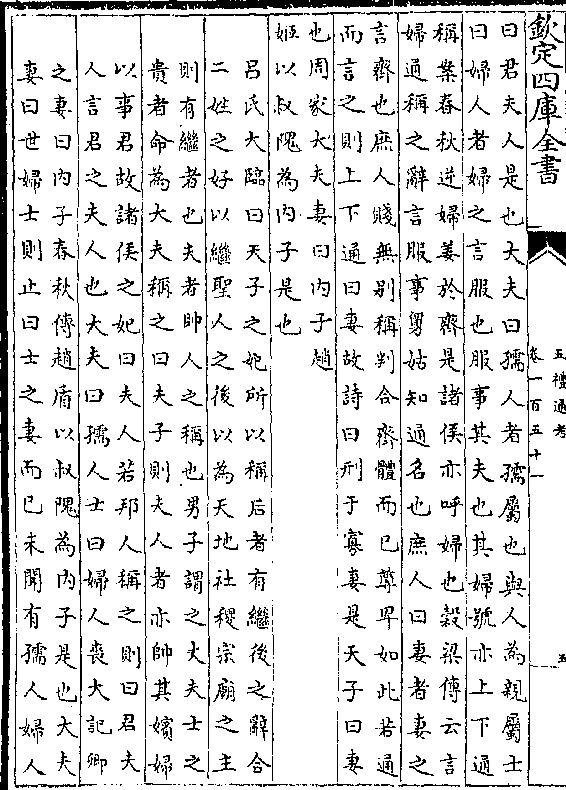 欽定四庫全書
五禮通考
卷一百五十一
五
曰君夫人是也大夫曰孺人者孺屬也與人為親屬士
曰婦人者婦之言服也服事其夫也其婦號亦上下通
稱案春秋逆婦姜於齊是諸侯亦呼婦也穀梁傳云言
婦通稱之辭言服事舅姑知通名也庶人曰妻者妻之
言齊也庶人賤無别稱判合齊體而已尊卑如此若通
而言之則上下通曰妻故詩曰刑于寡妻是天子曰妻
也周家大夫妻曰内子趙
姬以叔隗為内子是也
吕氏大臨曰天子之妃所以稱后者有繼後之辭合
二姓之好以繼聖人之後以為天地社稷宗廟之主
則有繼者也夫者帥人之稱也男子謂之丈夫士之
貴者命為大夫稱之曰夫子則夫人者亦帥其嬪婦
以事君故諸侯之妃曰夫人若邦人稱之則曰君夫
人言君之夫人也大夫曰孺人士曰婦人喪大記卿
之妻曰内子春秋傳趙盾以叔隗為内子是也大夫
妻曰世婦士則止曰士之妻而已未聞有孺人婦人